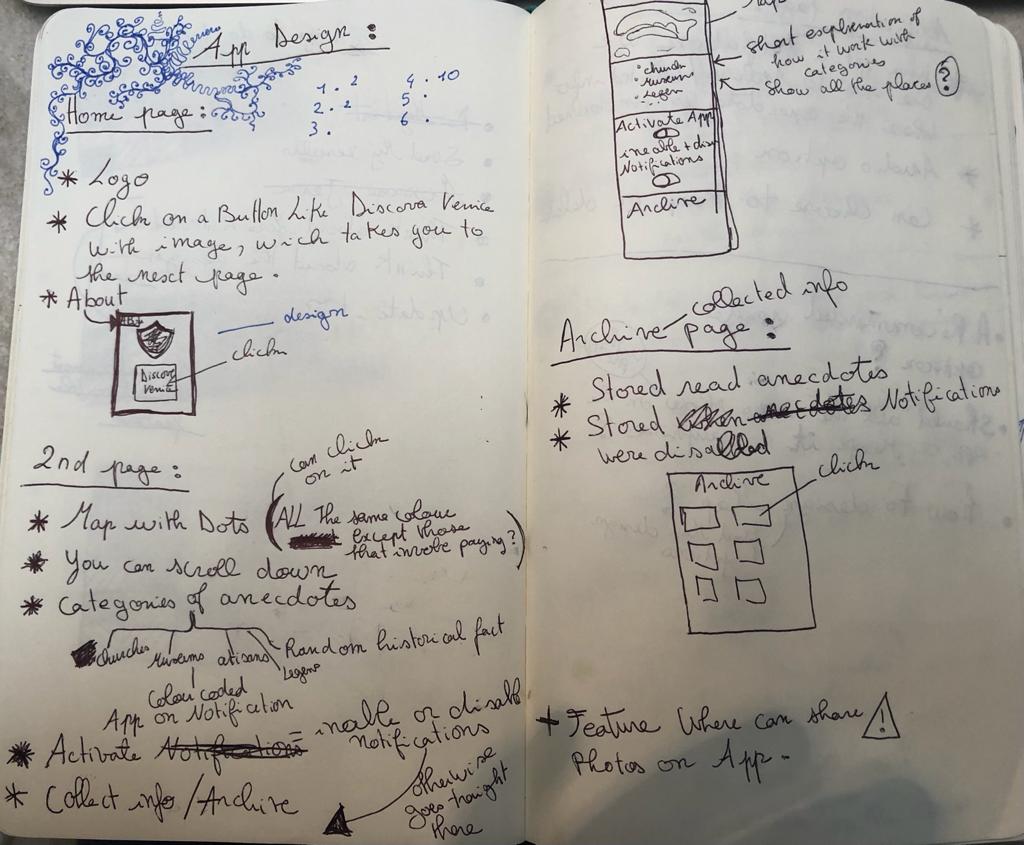 App Design :
1. 2
2. 2
3.
4. 10
5.
6.
Home page:
* Logo
* Click on a Button Like Discova Venice
with image, wich takes you to
the next page.
* About
design
click
Discova
Venice
2nd page:
can click
on it
* Map with Dots (ALL The same colour
except those
that involve paying?)
* You can scroll down
* Categories of anecdotes
churches museums atisans Legens Random historical fact
Colour coded
on Notification
App
* Activate Notifications = inable or disable
notifications
* Collect info/Archive
otherwise
goes traight
there
Short explenation of
how it work with
categories
Show all the places ?
• church
• museums
• Legen
Activate App
ineable + dis
Notifications
Archive
collected info
Archive page:
* Stored read anecdotes
* Stored when anecdotes Notifications
were disabled
click
Archive
+ Feature Where can share !
Photos on App -